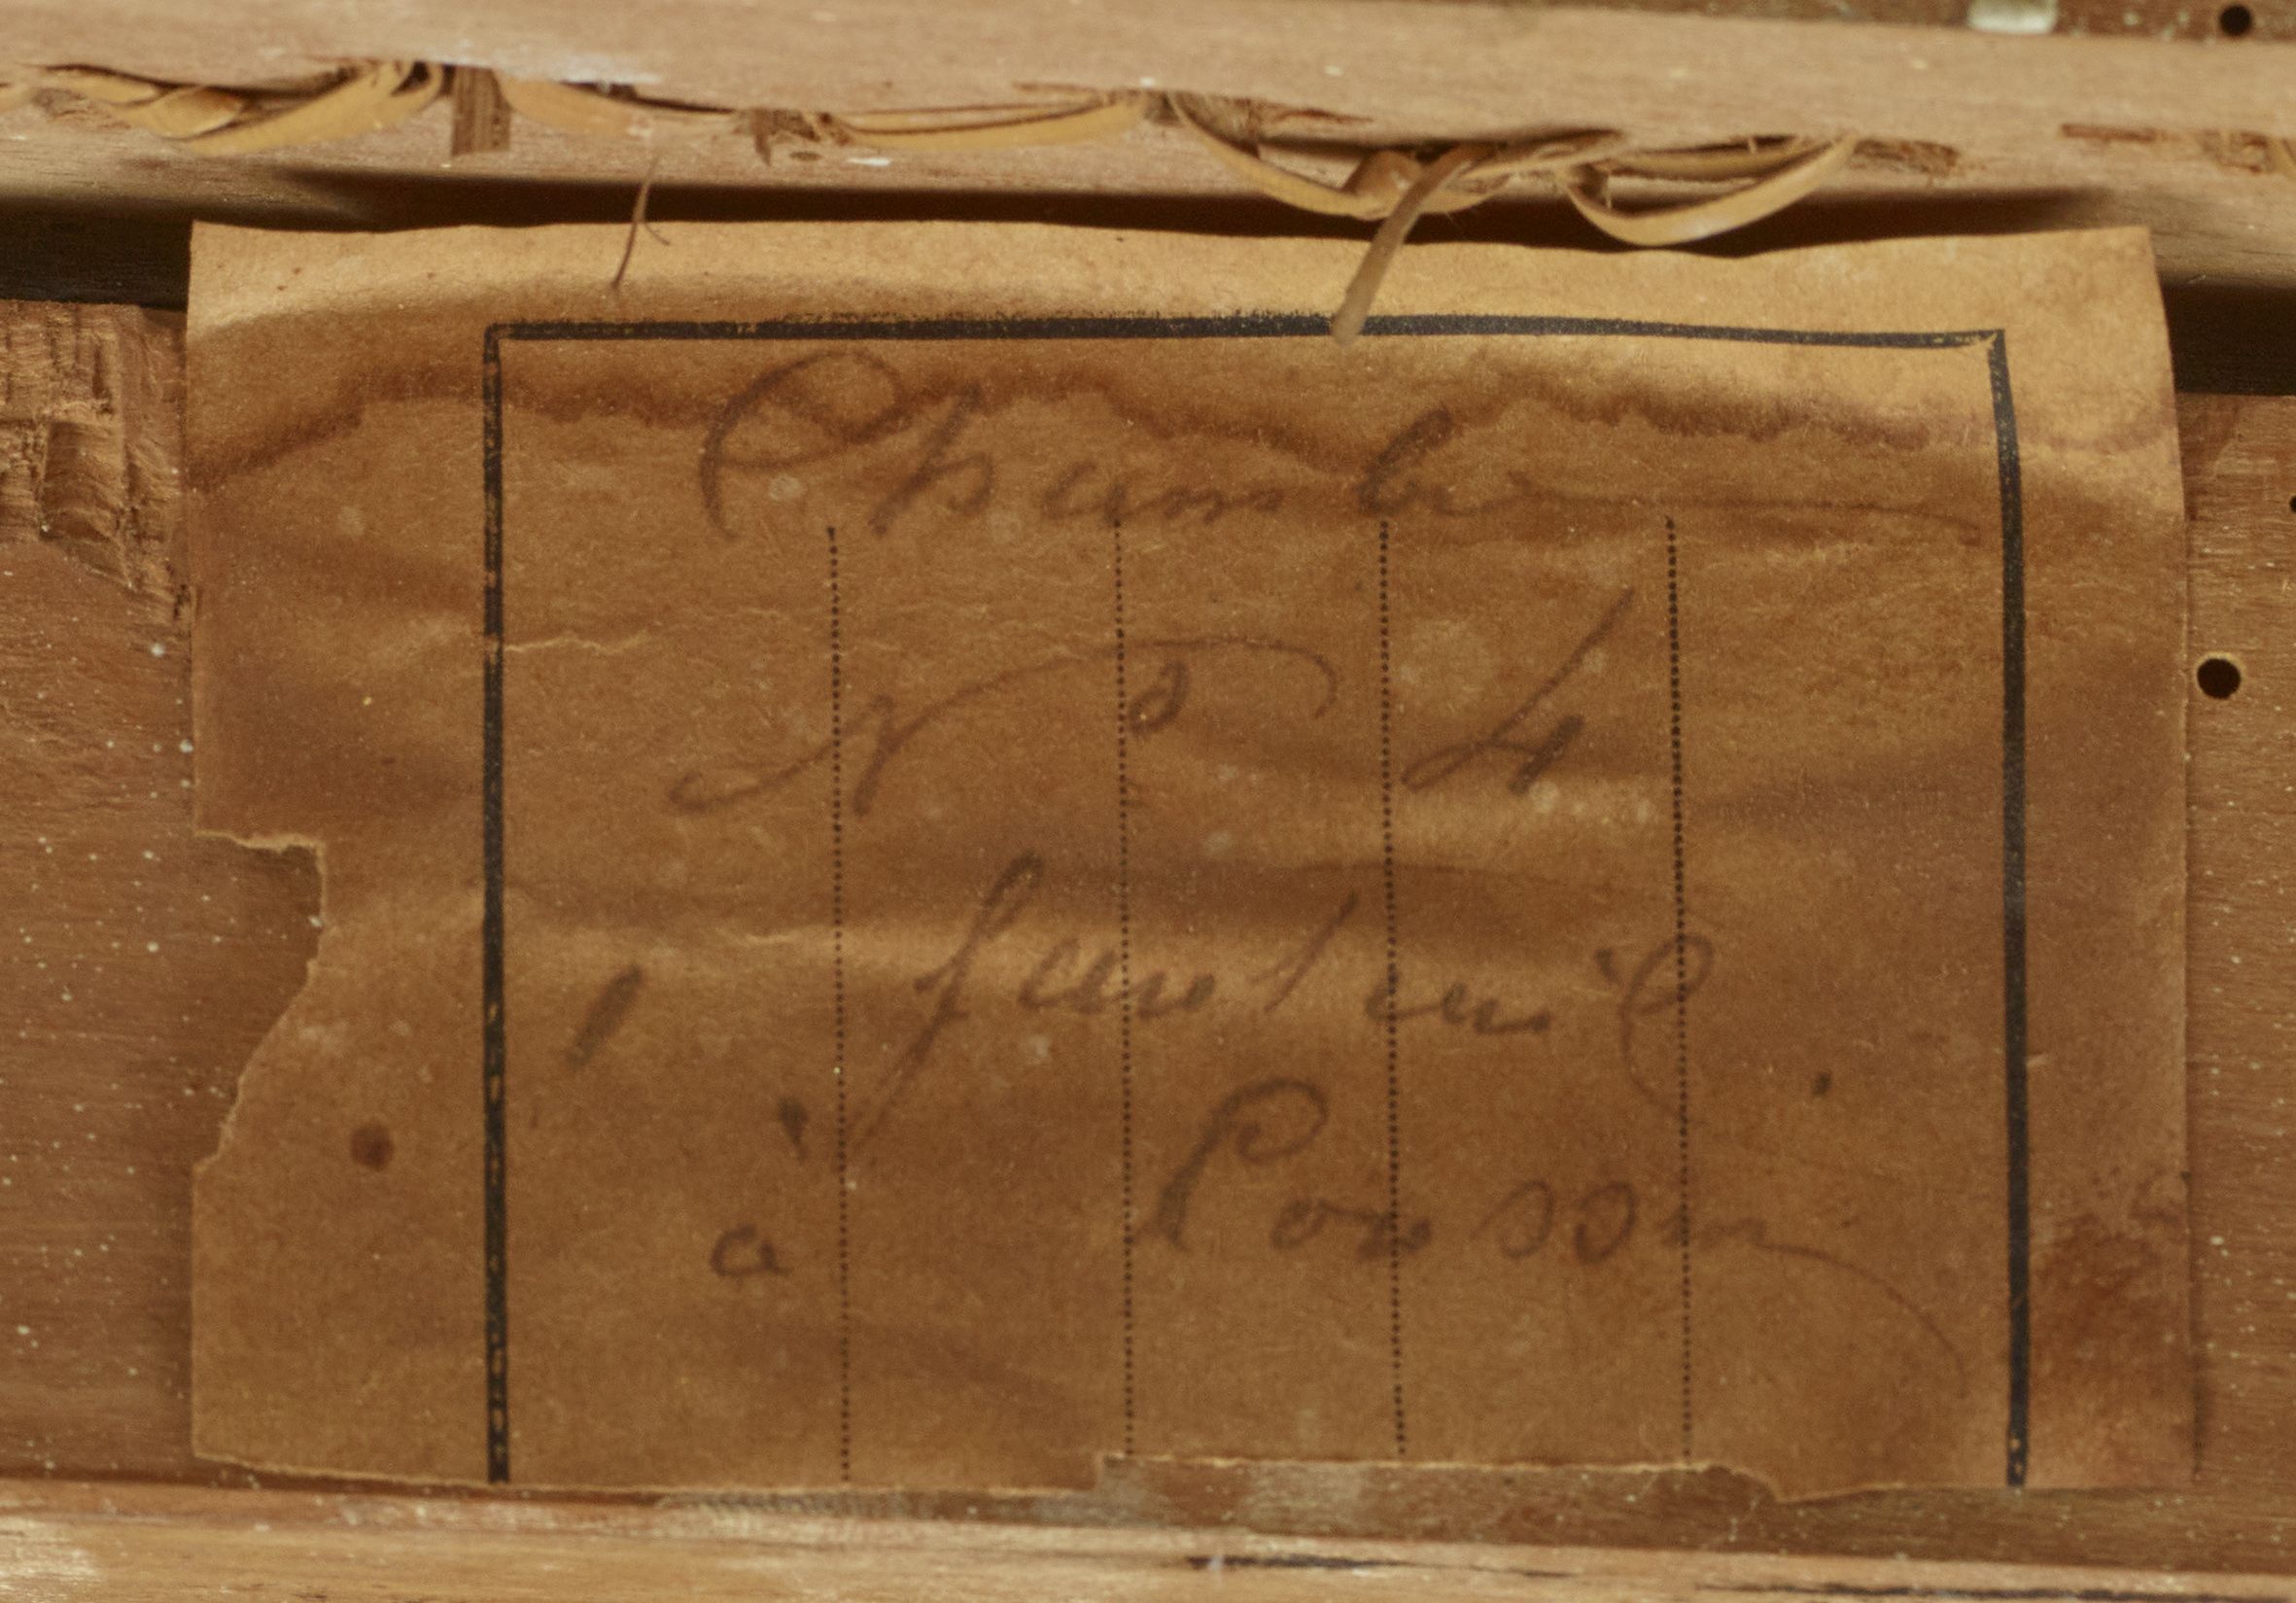 Chambre
N° 4
1 fauteuil
à Poisson